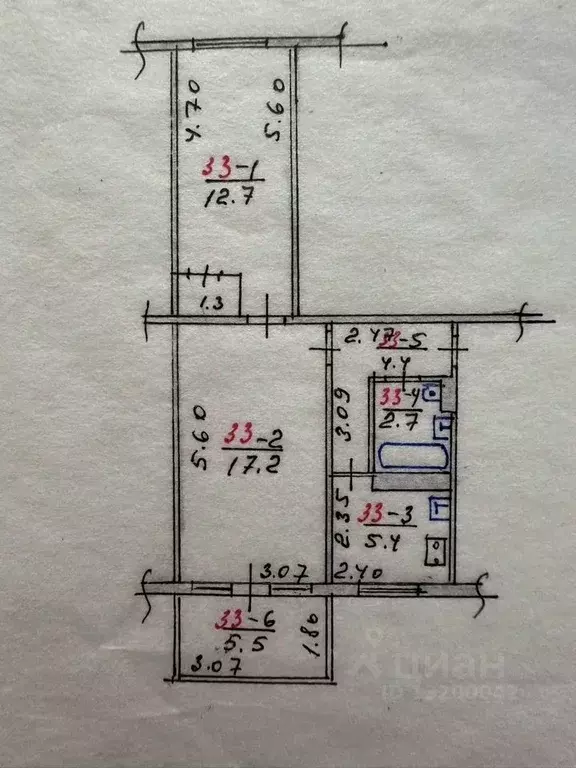 4.70
5.60
33-1
12.7
1.3
2.47
33-5
4.4
33-4
2.7
3.09
5.60
33-2
17.2
2.35
33-3
5.4
3.07
2.40
33-6
5.5
1.80
3.07
циан